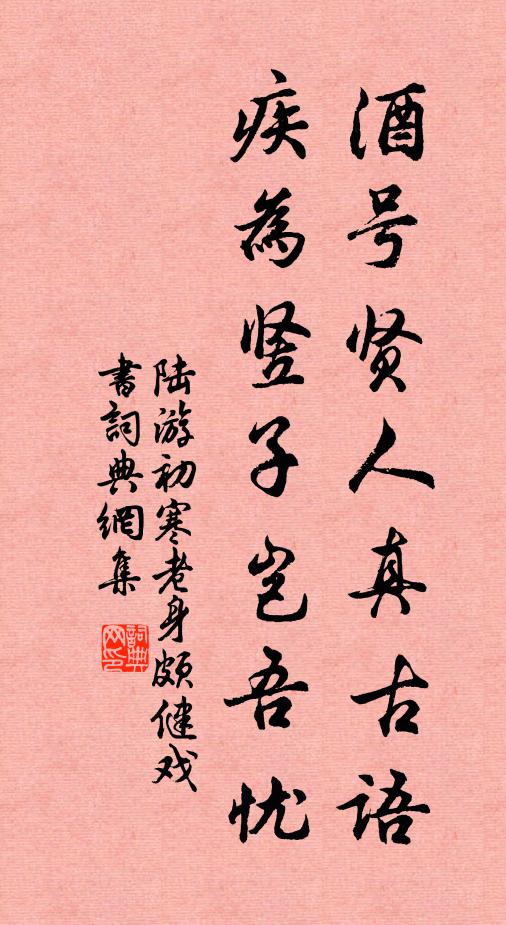 酒号贤人真古语
疾為竖子岂吾忧
陆游初寒老身颇健戏
書詞典網集
詞典
网印